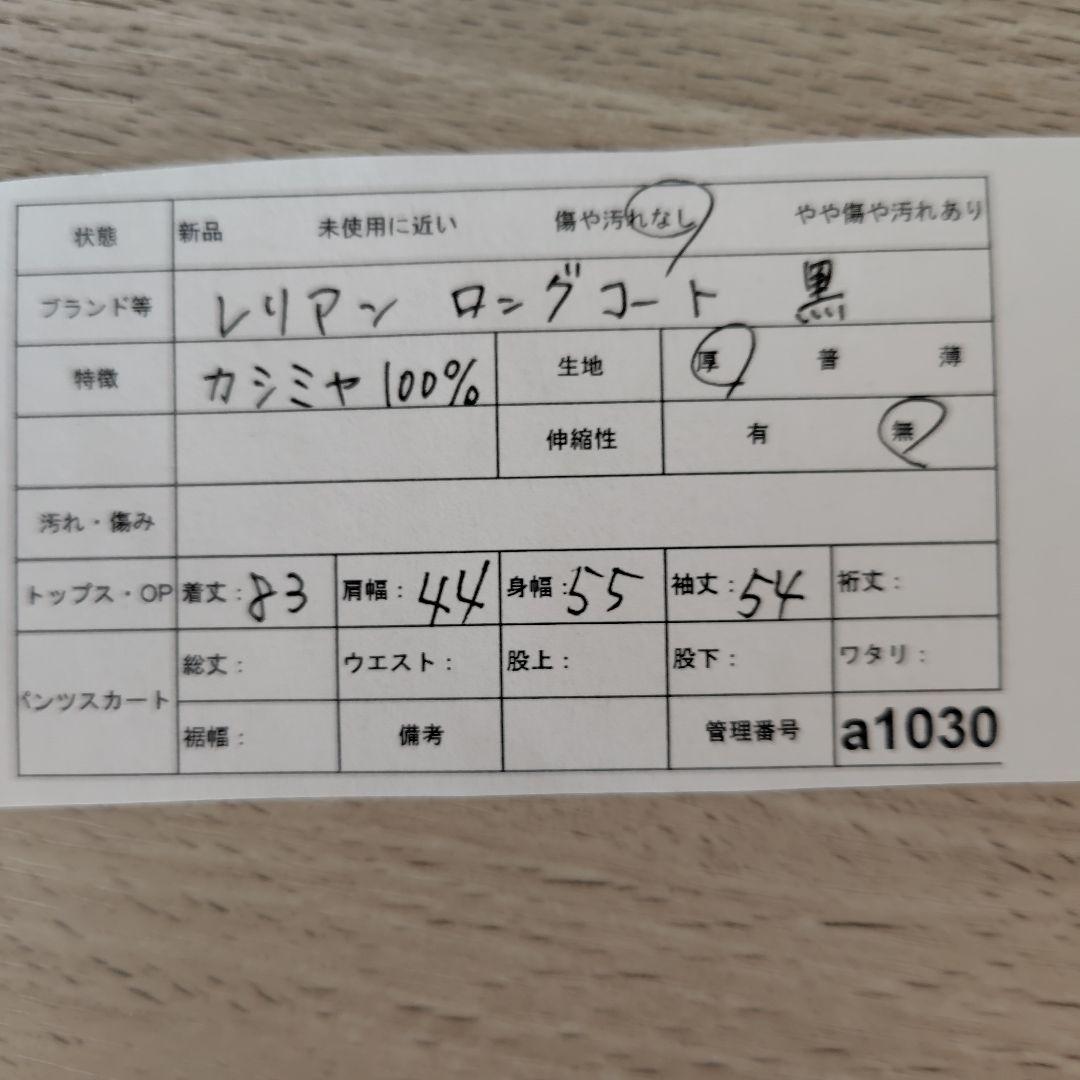 状態 新品 未使用に近い 傷や汚れなし やや傷や汚れあり
ブランド等 レリアン ロングコート 黒
特徴 カシミヤ100% 生地 厚 普 薄
伸縮性 有 無
汚れ・傷み
トップス・OP 着丈：83 肩幅：44 身幅：55 袖丈：54 裄丈：
パンツスカート 総丈： ウエスト： 股上： 股下： ワタリ：
裾幅： 備考 管理番号 a1030